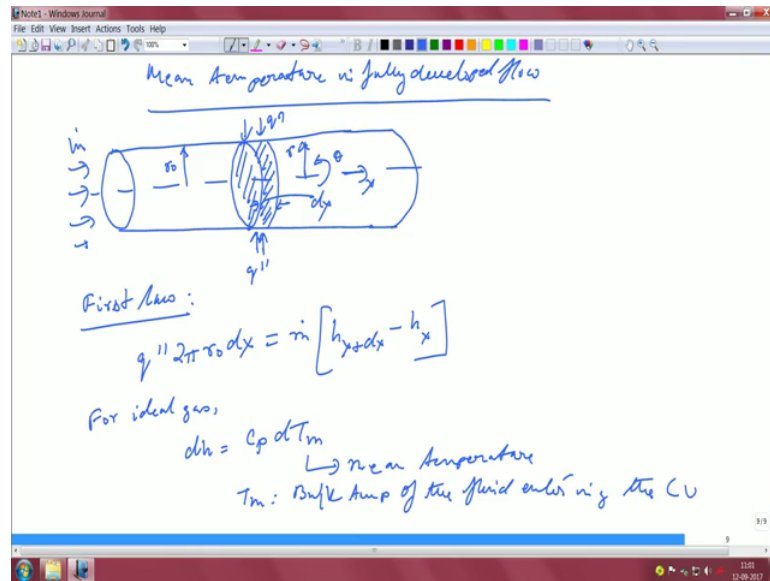 Note1 - Windows Journal
File Edit View Insert Actions Tools Help
100%
B I
Mean temperature in fully developed flow
q"
ṁ
r₀
r
θ
x
dx
q"
First law :
q" 2π r₀ dx = ṁ [h_{x+dx} - h_x]
For ideal gas,
dh = Cp dTm
↳ mean temperature
Tm : Bulk temp of the fluid entering the CV
9/9
9
11:01
12-09-2017